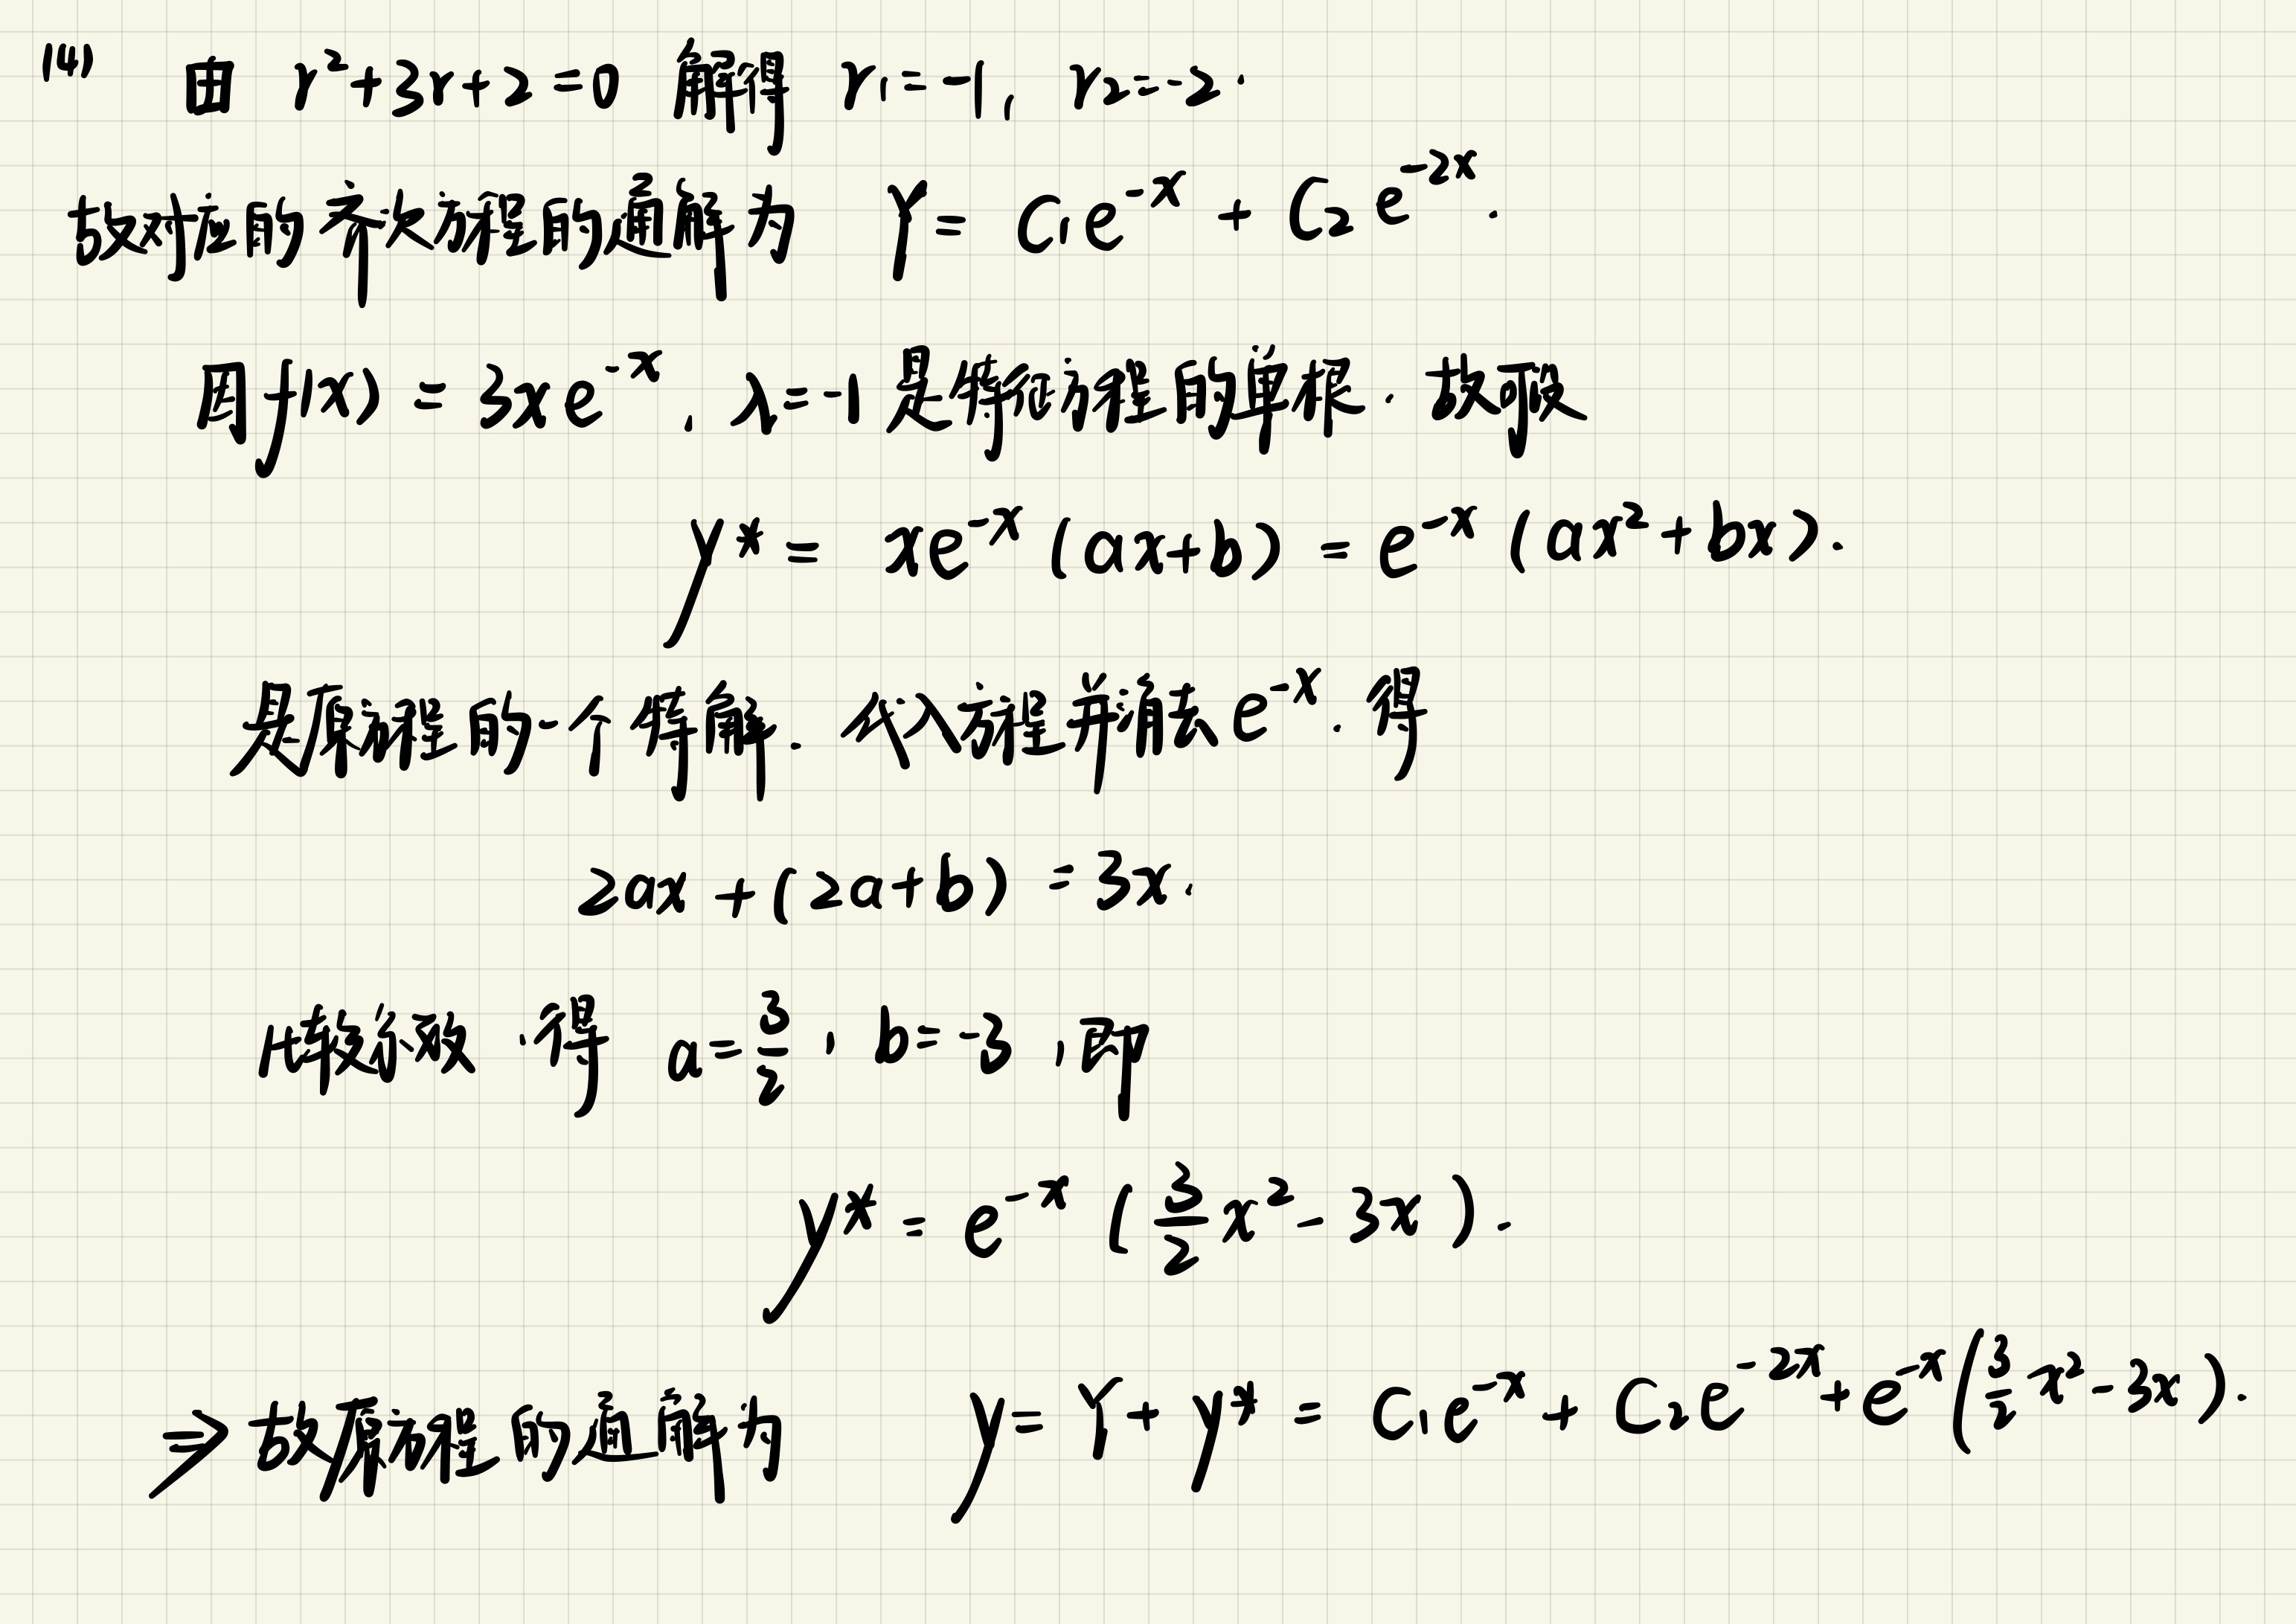 (4) 由 r²+3r+2=0 解得 r₁=-1, r₂=-2.
故对应的齐次方程的通解为 Y = C₁e^{-x} + C₂e^{-2x}.
因f(x) = 3xe^{-x}, λ=-1是特征方程的单根. 故可设
y* = xe^{-x}(ax+b) = e^{-x}(ax²+bx).
是原方程的一个特解. 代入方程并消去e^{-x}. 得
2ax+(2a+b) = 3x.
比较系数. 得 a=3/2, b=-3, 即
y* = e^{-x}(3/2 x²-3x).
⇒ 故原方程的通解为 y=Y+y* = C₁e^{-x}+C₂e^{-2x}+e^{-x}(3/2 x²-3x).